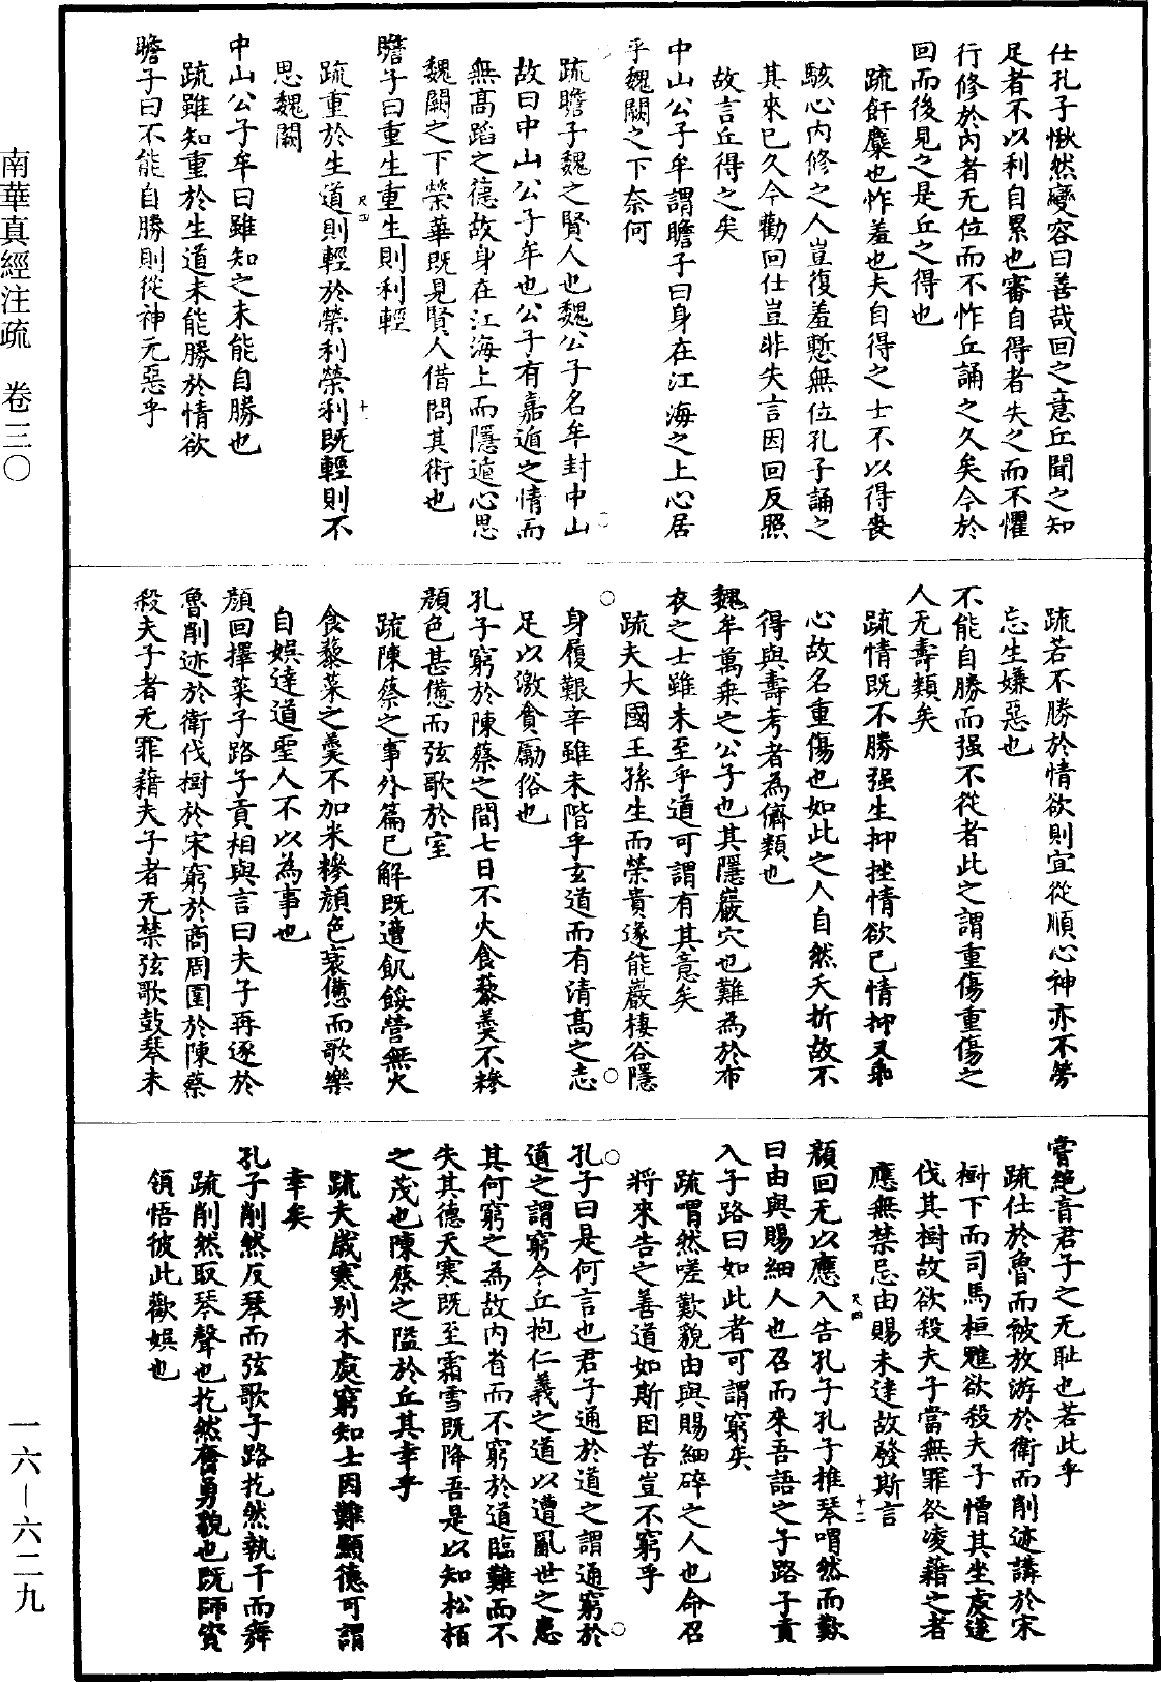 南華真經注疏　卷三〇
仕孔子愀然變容曰善哉回之意丘聞之知
足者不以利自累也審自得者失之而不懼
行修於內者无位而不怍丘誦之久矣今於
回而後見之是丘之得也
疏飦糜也怍羞也夫自得之士不以得喪
駭心內修之人豈復羞慙無位孔子誦之
其來已久今勸回仕豈非失言因回反照
故言丘得之矣
中山公子牟謂瞻子曰身在江海之上心居
乎魏闕之下奈何
疏瞻子魏之賢人也魏公子名牟封中山
故曰中山公子牟也公子有嘉遁之情而
無高蹈之德故身在江海上而隱遁心思
魏闕之下榮華既見賢人借問其術也
瞻子曰重生重生則利輕
尺四
疏重於生道則輕於榮利榮利既輕則不
十一
思魏闕
中山公子牟曰雖知之未能自勝也
疏雖知重於生道未能勝於情欲
瞻子曰不能自勝則從神无惡乎
疏若不勝於情欲則宜從順心神亦不勞
忘生嫌惡也
不能自勝而强不從者此之謂重傷重傷之
人无壽類矣
疏情既不勝强生抑挫情欲已情抑又乖
心故名重傷也如此之人自然夭折故不
得與壽考者為儕類也
魏牟萬乘之公子也其隱巖穴也難為於布
衣之士雖未至乎道可謂有其意矣
疏夫大國王孫生而榮貴遂能巖棲谷隱
身履艱辛雖未階乎玄道而有清高之志
足以激貪勵俗也
孔子窮於陳蔡之間七日不火食藜羹不糝
顏色甚憊而弦歌於室
疏陳蔡之事外篇已解既遭飢餒營無火
食藜菜之羹不加米糝顏色衰憊而歌樂
自娛達道聖人不以為事也
顏回擇菜子路子貢相與言曰夫子再逐於
魯削迹於衛伐樹於宋窮於商周圍於陳蔡
殺夫子者无罪藉夫子者无禁弦歌鼓琴未
嘗絕音君子之无耻也若此乎
疏仕於魯而被放游於衛而削迹講於宋
樹下而司馬桓魋欲殺夫子憎其坐處遂
伐其樹故欲殺夫子當無罪咎凌藉之者
應無禁忌由賜未達故發斯言
十二
顏回无以應入告孔子孔子推琴喟然而歎
尺四
曰由與賜細人也召而來吾語之子路子貢
入子路曰如此者可謂窮矣
疏喟然嗟歎貌由與賜細碎之人也命召
將來告之善道如斯困苦豈不窮乎
孔子曰是何言也君子通於道之謂通窮於
道之謂窮今丘抱仁義之道以遭亂世之患
其何窮之為故內省而不窮於道臨難而不
失其德天寒既至霜雪既降吾是以知松栢
之茂也陳蔡之隘於丘其幸乎
疏夫歲寒别木處窮知士因難顯德可謂
幸矣
孔子削然反琴而弦歌子路扢然執干而舞
疏削然取琴聲也扢然奮勇貌也既師資
領悟彼此歡娛也
一六—六二九